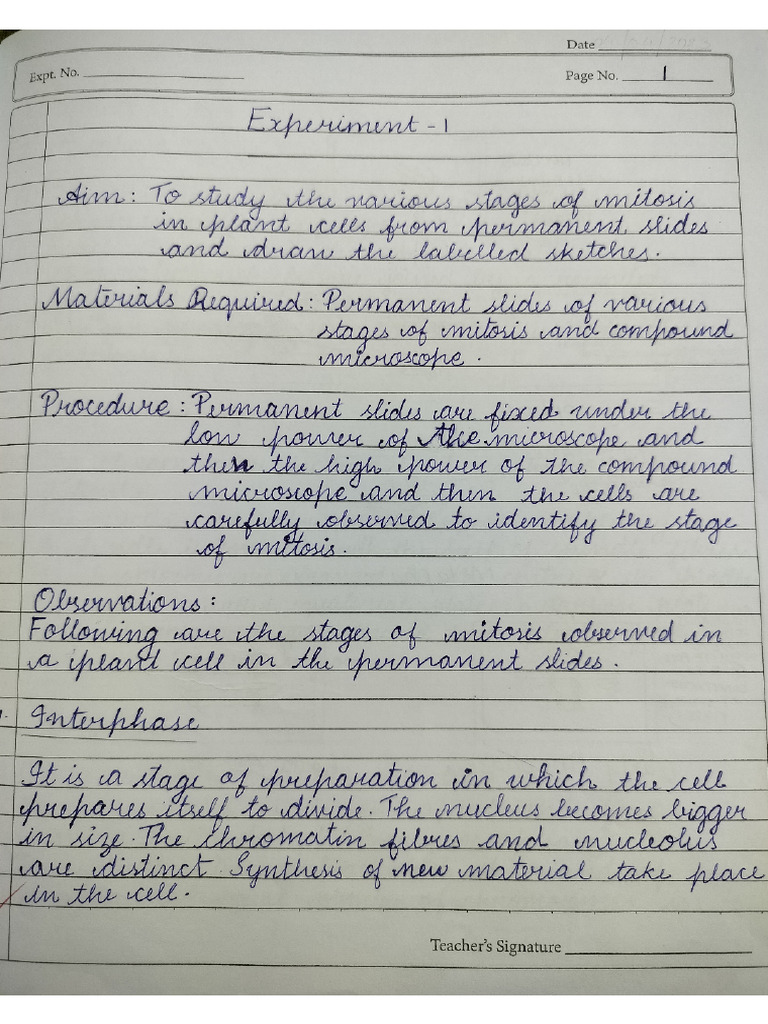 Date
Expt. No.
Page No. 1
Experiment - 1
Aim: To study the various stages of mitosis
in plant cells from permanent slides
and draw the labelled sketches.
Materials Required: Permanent slides of various
stages of mitosis and compound
microscope.
Procedure: Permanent slides are fixed under the
low power of the microscope and
then the high power of the compound
microscope and then the cells are
carefully observed to identify the stage
of mitosis.
Observations:
Following are the stages of mitosis observed in
a plant cell in the permanent slides.
Interphase
It is a stage of preparation in which the cell
prepares itself to divide. The nucleus becomes bigger
in size. The chromatin fibres and nucleolus
are distinct. Synthesis of new material take place
in the cell.
Teacher's Signature